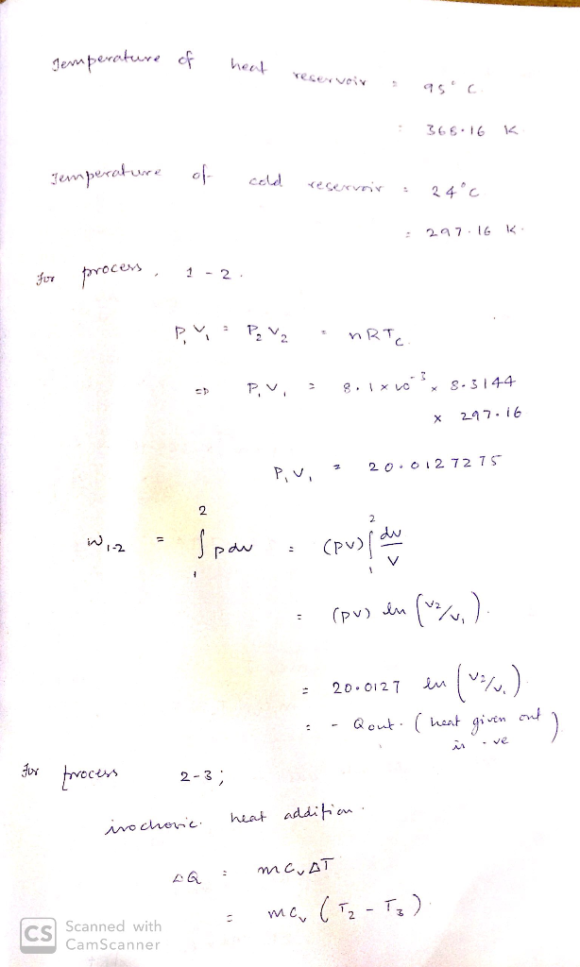 Temperature of heat reservoir = 95° C.
= 368.16 K.
Temperature of cold reservoir = 24°C
= 297.16 K.
for process, 1 - 2.
P₁V₁ = P₂V₂ = nRT_C
⇒ P₁V₁ = 8.1 × 10⁻³ × 8.3144
× 297.16
P₁V₁ = 20.0127275
W₁₋₂ = ∫₁² pdv = (PV) ∫₁² dv/V
= (PV) ln (V₂/V₁).
= 20.0127 ln (V₂/V₁).
= - Qout. (heat given out is -ve)
for process 2-3;
isochoric heat addition.
ΔQ = mCᵥΔT
= mCᵥ (T₂ - T₃)
CS Scanned with
CamScanner